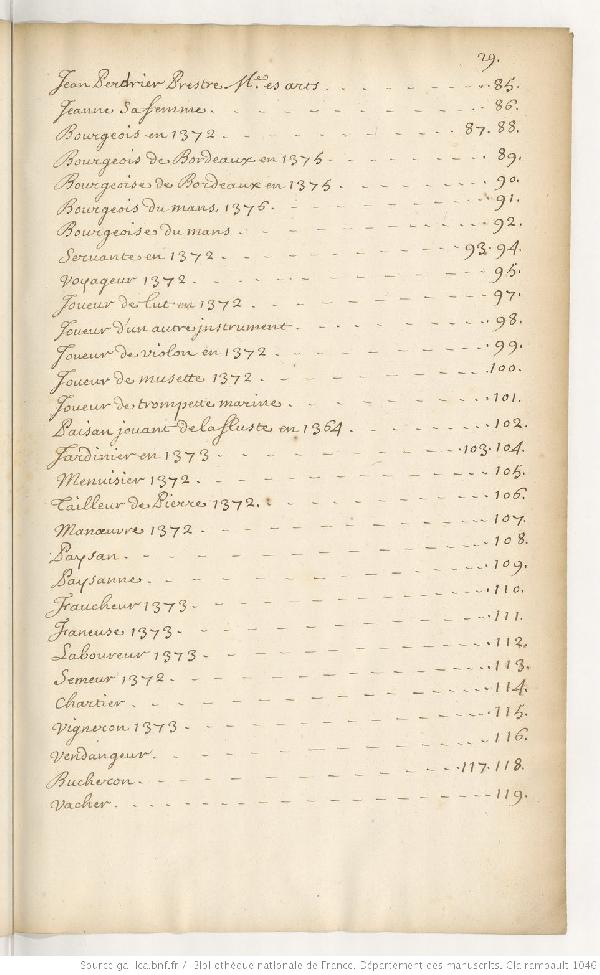 29.
Jean Perdrier Prestre Mᵉ es arts . . . . . . . 85.
Jeanne Sa femme. . . . . . . 86.
Bourgeois en 1372 . . . . . . . 87. 88.
Bourgeois de Bordeaux en 1375 . . . . . . . 89.
Bourgeoise de Bordeaux en 1375 . . . . . . . 90.
Bourgeois du mans, 1375. . . . . . . 91.
Bourgeoise du mans . . . . . . . 92.
Servante en 1372 . . . . . . . 93. 94.
Voyageur 1372 . . . . . . . 95.
Joueur de lut en 1372 . . . . . . . 97.
Joueur d'un autre jnstrument . . . . . . . 98.
Joueur de violon en 1372 . . . . . . . 99.
Joueur de musette 1372 . . . . . . . 100.
Joueur de trompette marine . . . . . . . 101.
Paisan jouant de la fluste en 1364 . . . . . . . 102.
Jardinier en 1373 . . . . . . . 103. 104.
Menuisier 1372 . . . . . . . 105.
Tailleur de Pierre 1372. . . . . . . 106.
Manœuvre 1372 . . . . . . . 107.
Paysan . . . . . . . 108.
Paysanne . . . . . . . 109.
Faucheur 1373 . . . . . . . 110.
Faneuse 1373 . . . . . . . 111.
Laboureur 1373 . . . . . . . 112.
Semeur 1372 . . . . . . . 113.
Chartier . . . . . . . 114.
Vigneron 1373 . . . . . . . 115.
Vendangeur . . . . . . . 116.
Bucheron . . . . . . . 117. 118.
Vacher . . . . . . . 119.
Source gallica.bnf.fr / Bibliothèque nationale de France. Département des manuscrits. Clairambault 1046